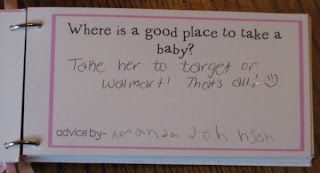 Where is a good place to take a
baby?
Take her to target or
walmart! That's all! :)
advice by- Amanda Johnson